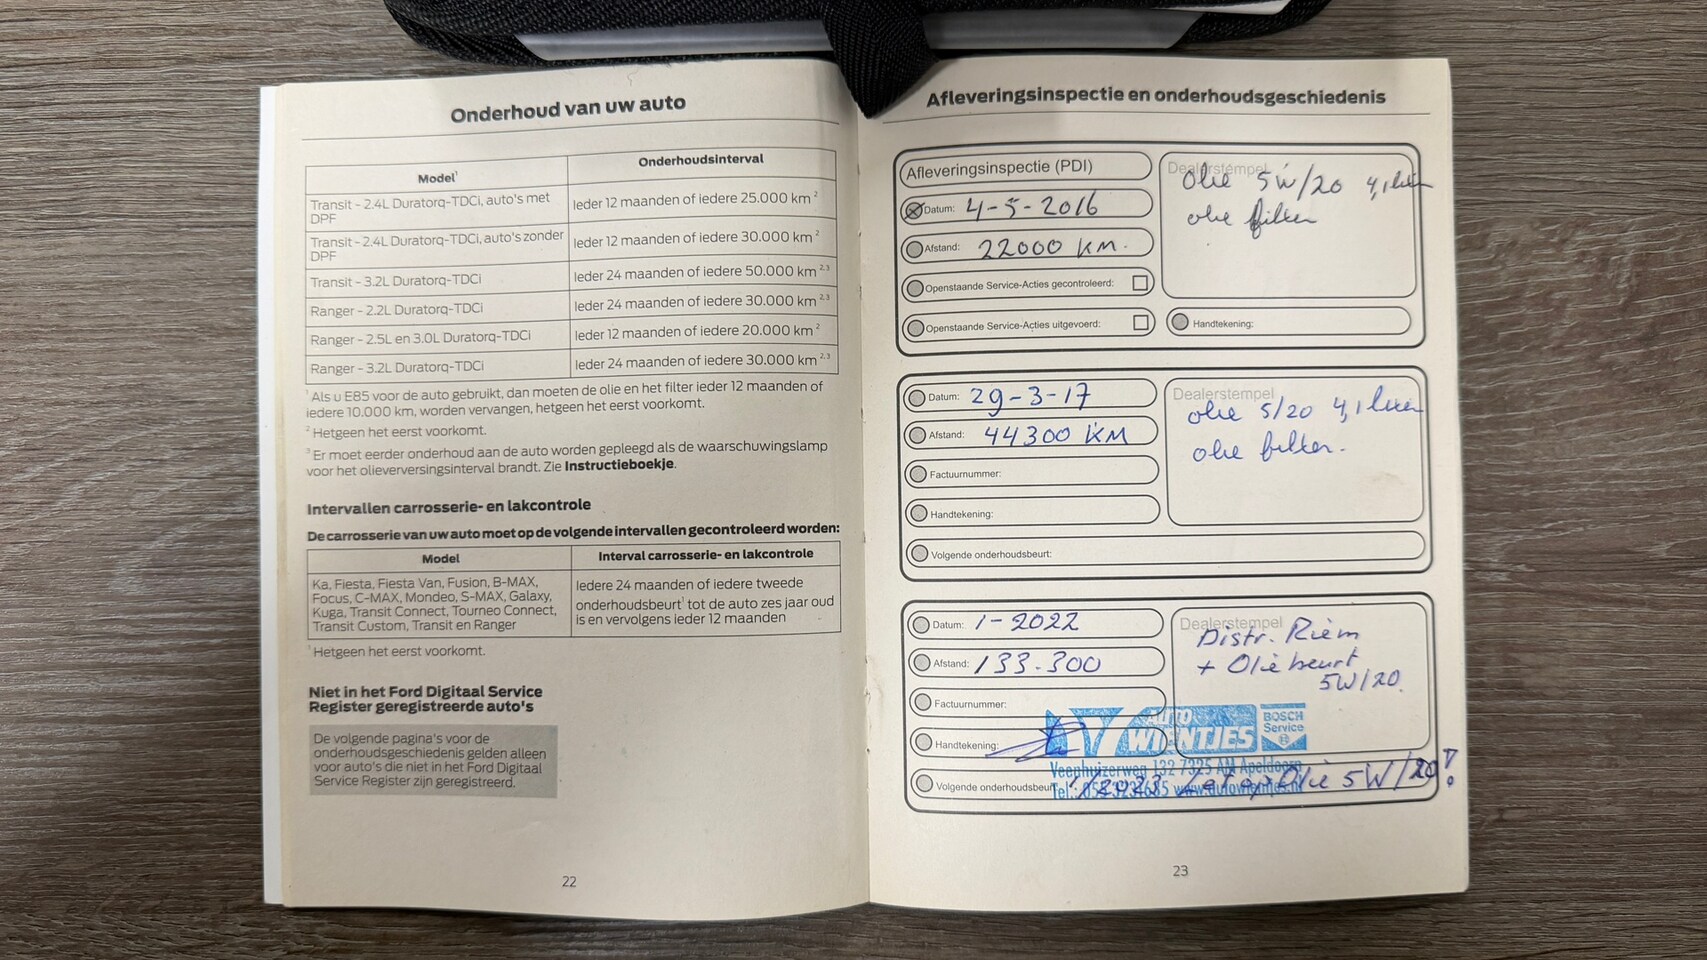 Onderhoud van uw auto
Model¹ Onderhoudsinterval
Transit - 2.4L Duratorq-TDCi, auto's met DPF Ieder 12 maanden of iedere 25.000 km ²
Transit - 2.4L Duratorq-TDCi, auto's zonder DPF Ieder 12 maanden of iedere 30.000 km ²
Transit - 3.2L Duratorq-TDCi Ieder 24 maanden of iedere 50.000 km ²,³
Ranger - 2.2L Duratorq-TDCi Ieder 24 maanden of iedere 30.000 km ²,³
Ranger - 2.5L en 3.0L Duratorq-TDCi Ieder 12 maanden of iedere 20.000 km ²
Ranger - 3.2L Duratorq-TDCi Ieder 24 maanden of iedere 30.000 km ²,³
¹ Als u E85 voor de auto gebruikt, dan moeten de olie en het filter ieder 12 maanden of
iedere 10.000 km, worden vervangen, hetgeen het eerst voorkomt.
² Hetgeen het eerst voorkomt.
³ Er moet eerder onderhoud aan de auto worden gepleegd als de waarschuwingslamp
voor het olieverversingsinterval brandt. Zie Instructieboekje.
Intervallen carrosserie- en lakcontrole
De carrosserie van uw auto moet op de volgende intervallen gecontroleerd worden:
Model Interval carrosserie- en lakcontrole
Ka, Fiesta, Fiesta Van, Fusion, B-MAX,
Focus, C-MAX, Mondeo, S-MAX, Galaxy,
Kuga, Transit Connect, Tourneo Connect,
Transit Custom, Transit en Ranger
Iedere 24 maanden of iedere tweede
onderhoudsbeurt¹ tot de auto zes jaar oud
is en vervolgens ieder 12 maanden
¹ Hetgeen het eerst voorkomt.
Niet in het Ford Digitaal Service
Register geregistreerde auto's
De volgende pagina's voor de
onderhoudsgeschiedenis gelden alleen
voor auto's die niet in het Ford Digitaal
Service Register zijn geregistreerd.
22
Afleveringsinspectie en onderhoudsgeschiedenis
Afleveringsinspectie (PDI)
Datum: 4-5-2016
Afstand: 22000 KM.
Openstaande Service-Acties gecontroleerd:
Openstaande Service-Acties uitgevoerd:
Dealerstempel
olie 5W/20 4,1 liter
olie filter
Handtekening:
Datum: 29-3-17
Afstand: 44300 KM
Factuurnummer:
Handtekening:
Volgende onderhoudsbeurt:
Dealerstempel
olie 5/20 4,1 liter
olie filter.
Datum: 1-2022
Afstand: 133.300
Factuurnummer:
Handtekening:
Dealerstempel
Distr. Riem
+ Olie beurt
5W/20.
AUTO
WIENTJES
BOSCH
Service
Veenhuizerweg 132 7325 AM Apeldoorn
Volgende onderhoudsbeurt: 1/2023 Let op Olie 5W/20!
Tel.:
23